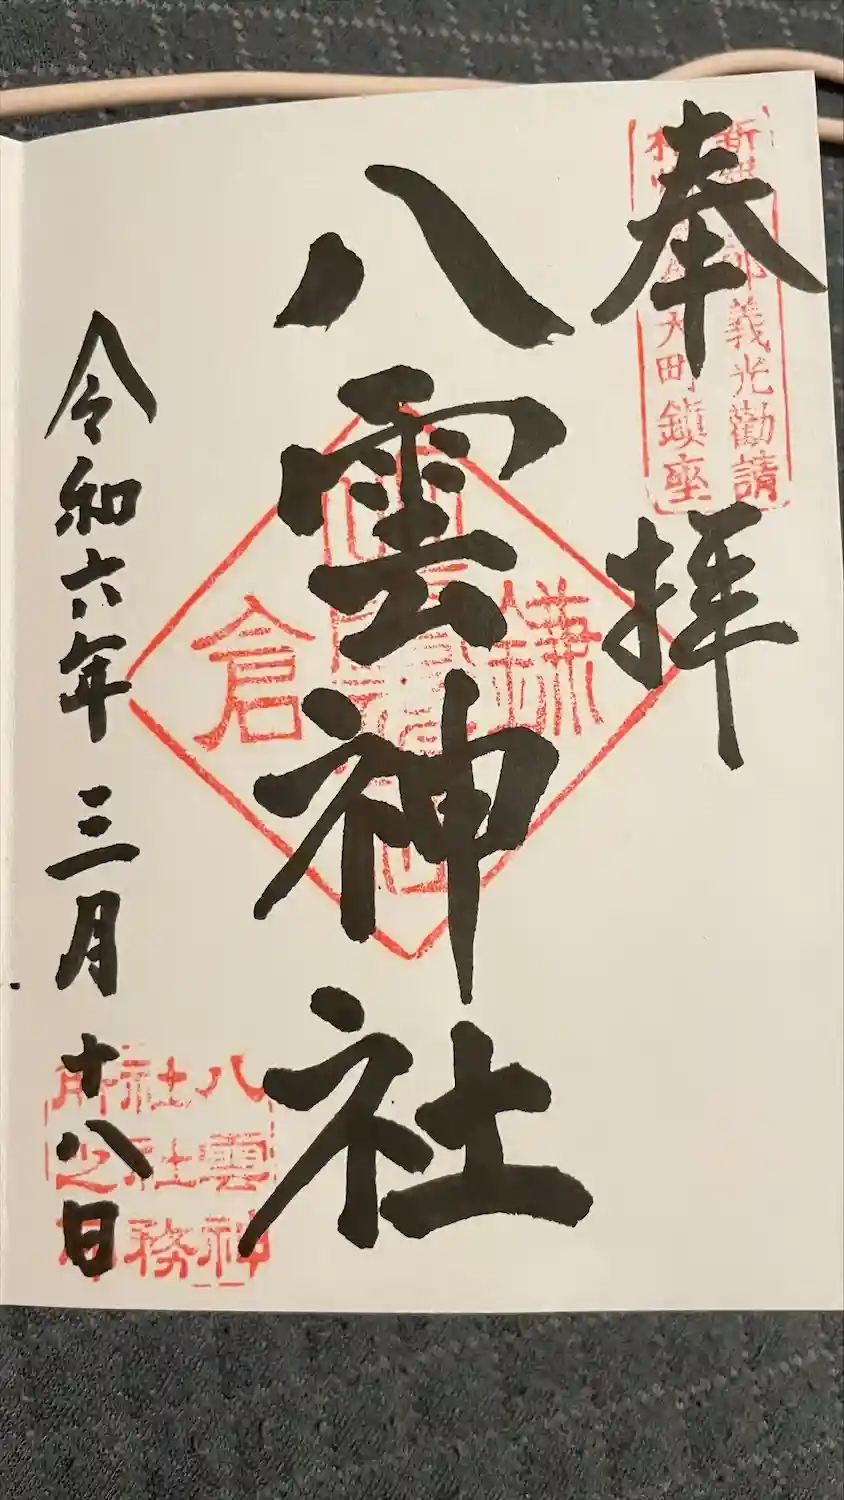 奉拝
新羅三郎義光勸請
相州鎌倉大町鎮座
八雲神社
鎌
倉
令和六年三月十八日
八雲神
社社務
所之印